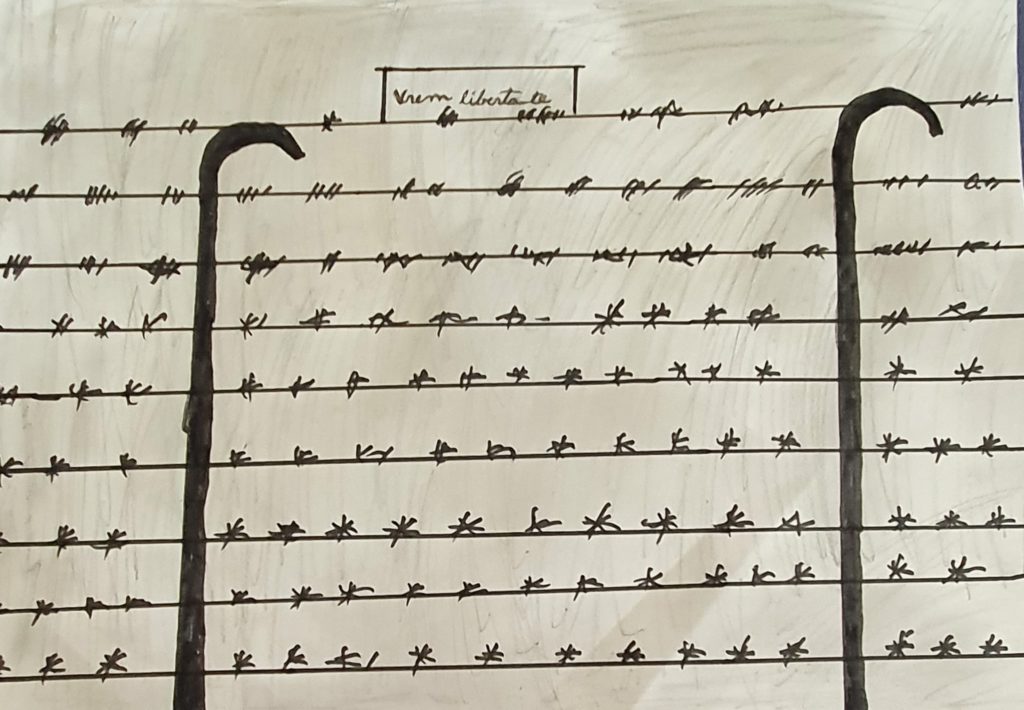 Vrem libertate